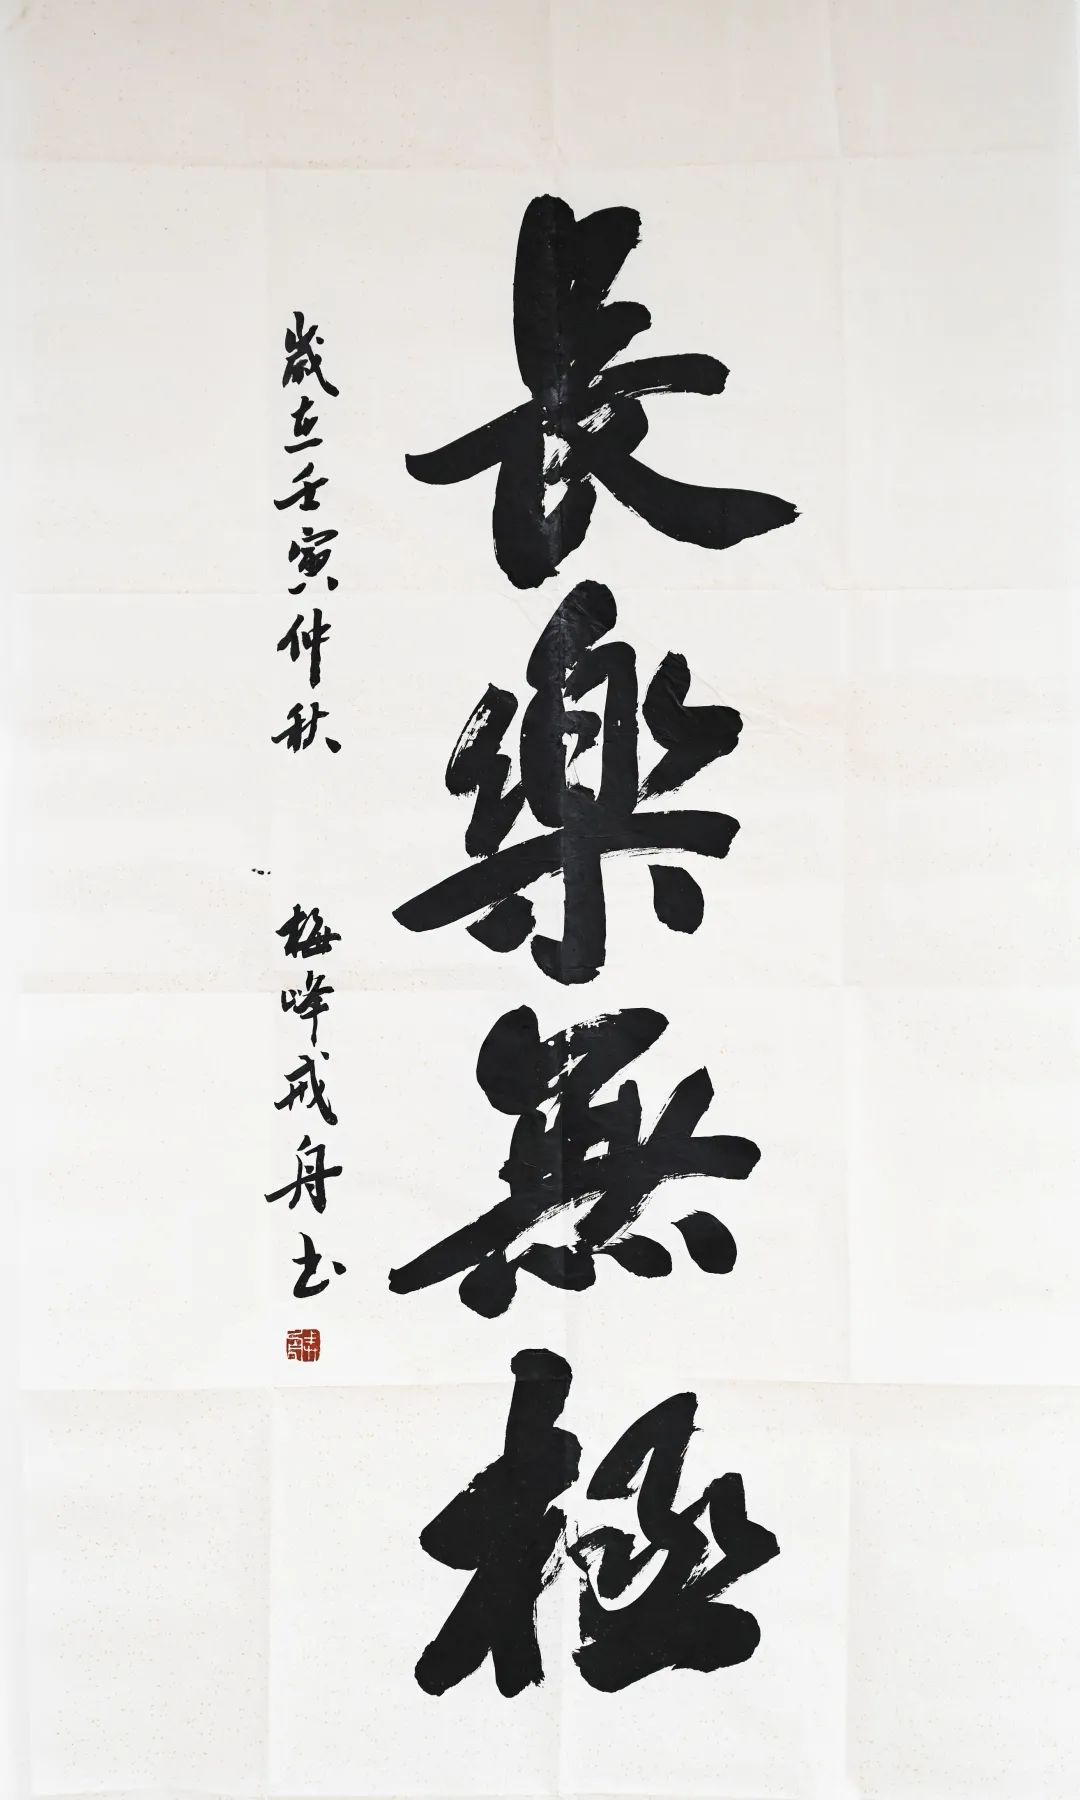 長樂無極
歲在壬寅仲秋 梅峰戒舟书